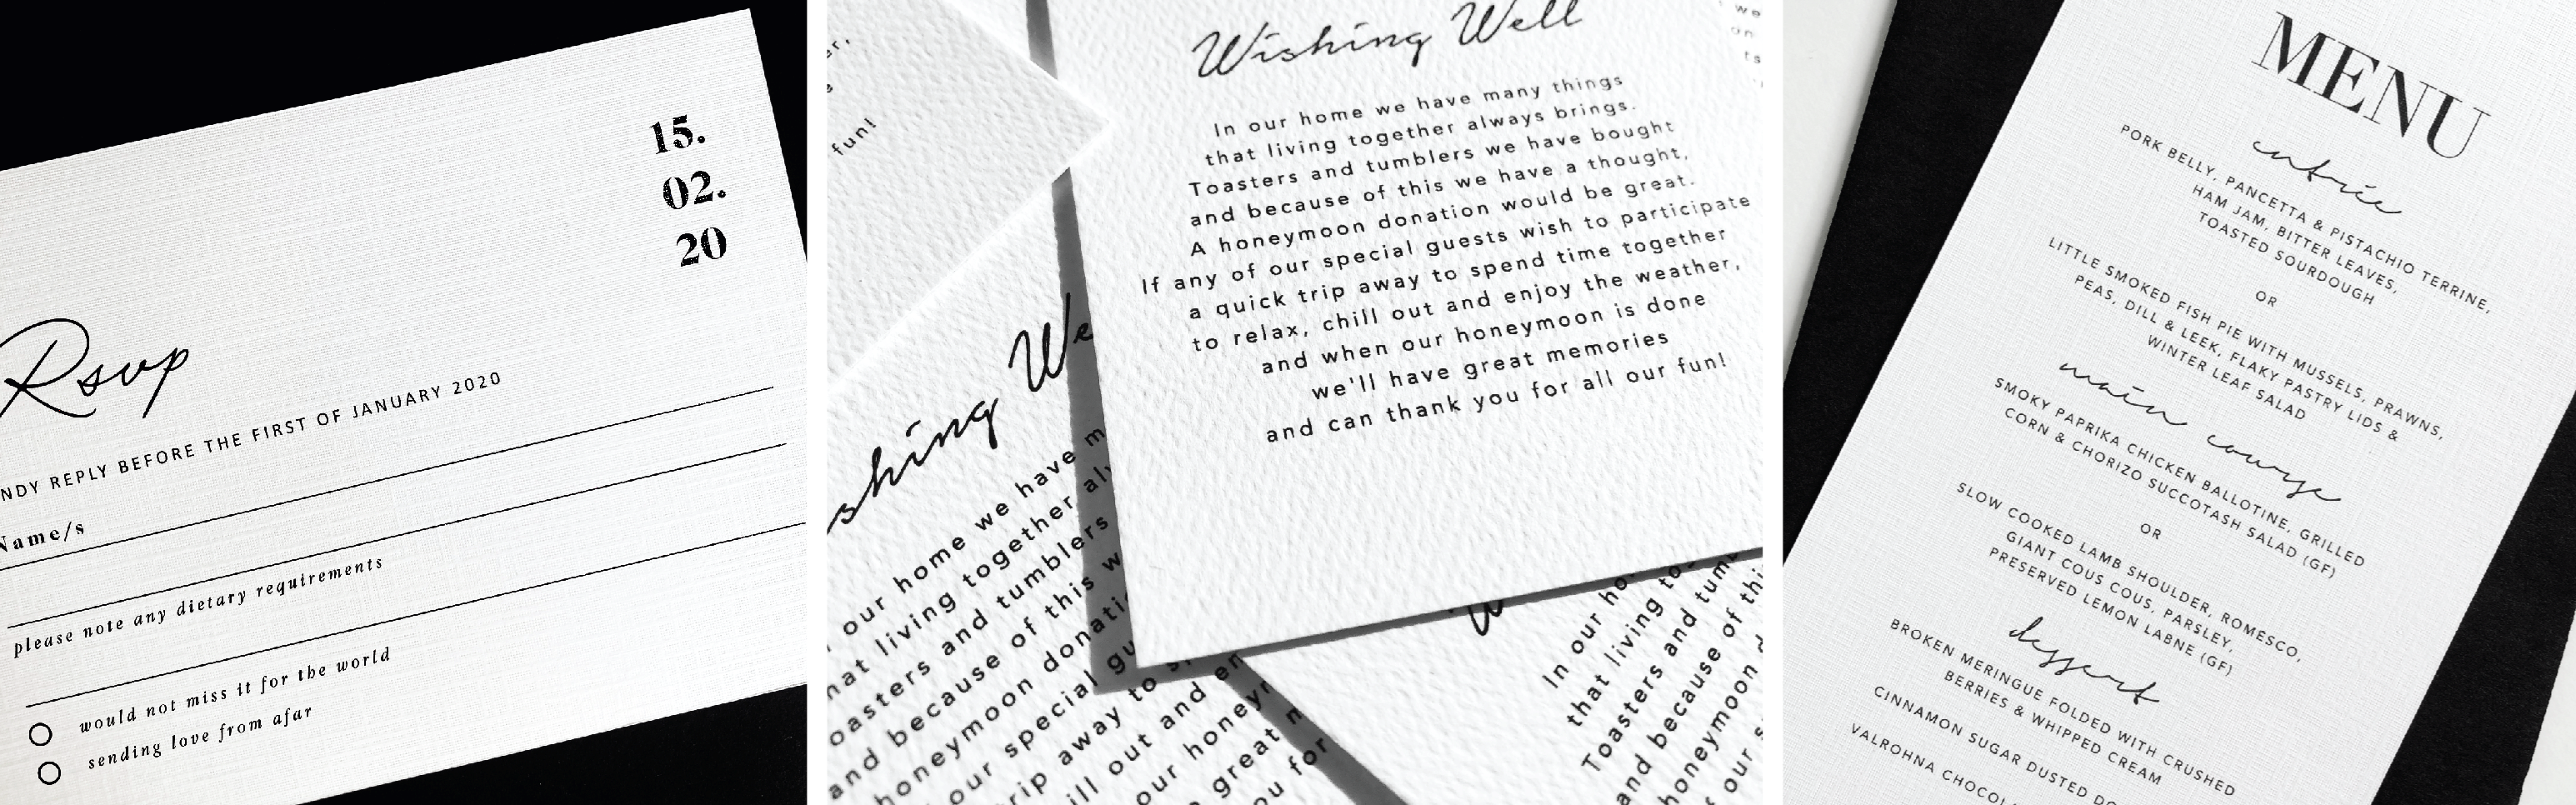 15.
02.
20
Rsvp
NDY REPLY BEFORE THE FIRST OF JANUARY 2020
Name/s
please note any dietary requirements
would not miss it for the world
sending love from afar
er,
fun!
Wishing Well
In our home we have many things
that living together always brings.
Toasters and tumblers we have bought
and because of this we have a thought,
A honeymoon donation would be great.
If any of our special guests wish to participate
a quick trip away to spend time together
to relax, chill out and enjoy the weather,
and when our honeymoon is done
we'll have great memories
and can thank you for all our fun!
shing We
our home we have m
hat living together alw
oasters and tumblers
and because of this w
honeymoon donatio
our special gu
trip away to sp
ill out and en
our honeym
great m
ou for
In our ho
that living to
Toasters and tum
and because of thi
honeymoon d
of our s
MENU
entrée
PORK BELLY, PANCETTA & PISTACHIO TERRINE,
HAM JAM, BITTER LEAVES,
TOASTED SOURDOUGH
OR
LITTLE SMOKED FISH PIE WITH MUSSELS, PRAWNS,
PEAS, DILL & LEEK, FLAKY PASTRY LIDS &
WINTER LEAF SALAD
main course
SMOKY PAPRIKA CHICKEN BALLOTINE, GRILLED
CORN & CHORIZO SUCCOTASH SALAD (GF)
OR
SLOW COOKED LAMB SHOULDER, ROMESCO,
GIANT COUS COUS, PARSLEY,
PRESERVED LEMON LABNE (GF)
dessert
BROKEN MERINGUE FOLDED WITH CRUSHED
BERRIES & WHIPPED CREAM
CINNAMON SUGAR DUSTED DO
VALROHNA CHOCOL